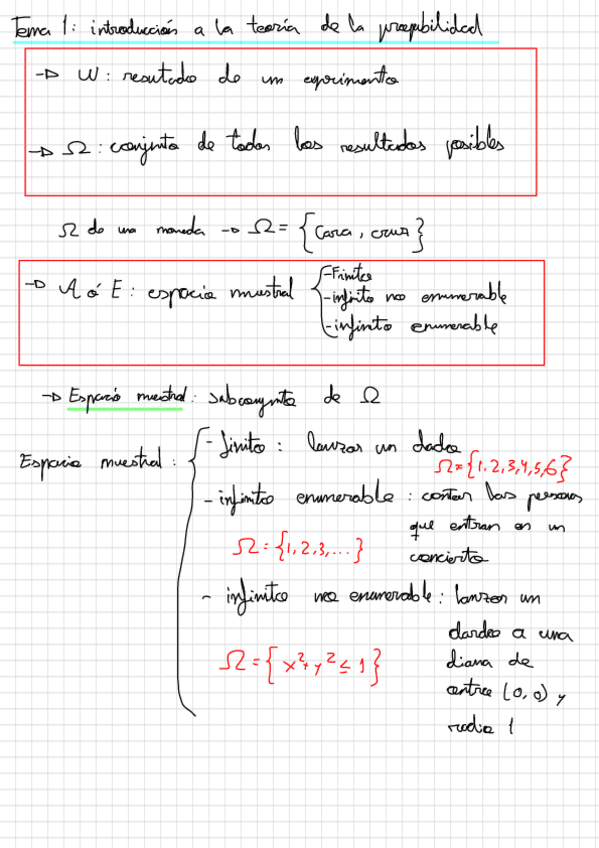 Tema 1: introducción a la teoría de la probabilidad
→ W: resutado de un exprimento
→ Ω: conjunto de todos los resultados posibles
Ω de una moneda → Ω = {Cara, cruz}
→ A ó E: espacio muestral { -Finito
-infinito no enumerable
-infinito enumerable
→ Espacio muestral: subconjunto de Ω
Espacio muestral: { - finito: lanzar un dado
Ω = {1,2,3,4,5,6}
- infinito enumerable: contar las personas
que entran en un
Ω = {1,2,3,...} concierto
- infinito no enumerable: lanzar un
dardo a una
Ω = { x²+y² ≤ 1 } diana de
centro (0,0) y
radio 1